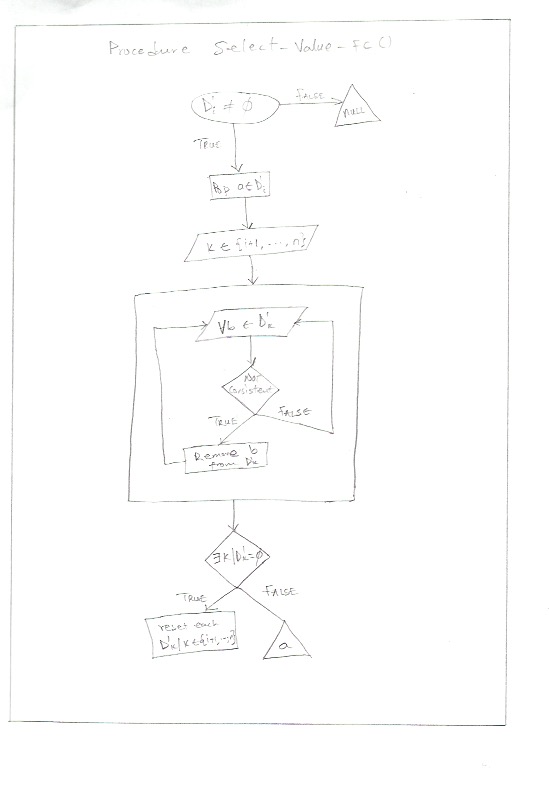 Procedure Select-Value-FC()
D'i ≠ ∅
FALSE
NULL
TRUE
Pop a ∈ D'i
k ∈ {i+1, ..., n}
∀b ∈ D'k
Not
Consistent
TRUE
FALSE
Remove b
from D'k
∃k/D'k=∅
TRUE
FALSE
reset each
D'k/k∈{i+1,...,n}
a